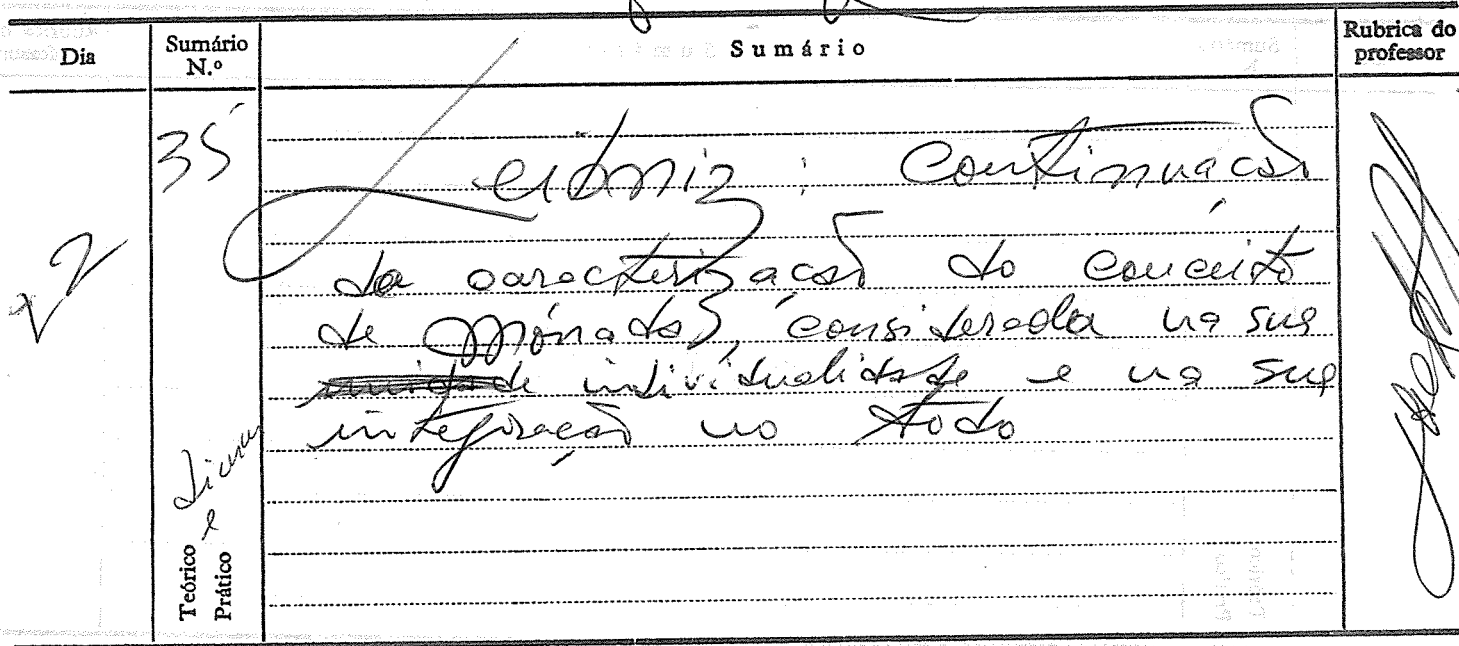 Dia
Sumário
N.º
Sumário
Rubrica do
professor
22
35
Leibniz: Continuação
da caracterização do conceito
de Mónada, considerada na sua
individualidade e na sua
integração no todo
Teórico e
Prático